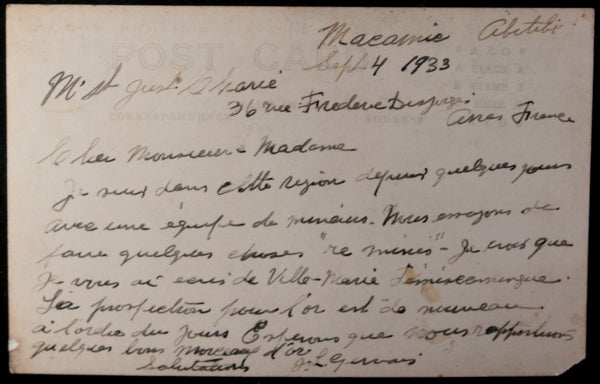 Macamic Abitibi
POST CA
Sept 4 1933
AZO
Mr et
36 rue Frederic
CORRESPONDENCE
ADDRESS
Arras France
Cher Monsieur & Madame
Je suis dans cette region depuis quelques jours
avec une équipe de mineurs. Nous essayons de
faire quelques choses "re mines" - Je crois que
Je vous ai ecris de Ville-Marie Témiscamingue.
La prospection pour l'or est de nouveau
à l'ordre du Jour Esperons que nous rapporterons
quelques bons morceaux d'or
Salutations J. L. Gervais